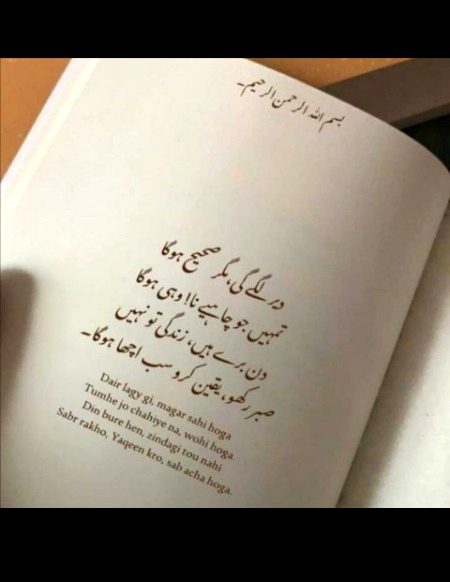 بسم اللہ الرحمن الرحیم۔
دیر لگے گی، مگر صحیح ہوگا
تمہیں جو چاہیے نا! وہی ہوگا
دن برے ہیں، زندگی تو نہیں
صبر رکھو، یقین کرو سب اچھا ہوگا۔
Dair lagy gi, magar sahi hoga
Tumhe jo chahiye na, wohi hoga
Din bure hen, zindagi tou nahi
Sabr rakho, Yaqeen kro, sab acha hoga.